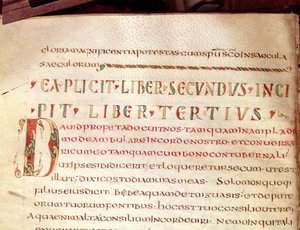 gloriamagnificentiapotestas cumspu scōinsaecula
saeculorum
EXPLICIT·LIBER·SECUNDUS·INCI
PIT·LIBER·TERTIUS·
DAUIDPROPETADOCUITNOSTAMQUAMINAMPLADO
MODEAMBULAREINCORDENOSTROETCONUERSA
RICUMEOTAMQUAMCUMBONOCONTUBERNALI
UTIPSESIBIDICERETETLOQUERETURSECUMUTEST
ILLUTDIXICUSTODIAMUIASMEAS SOLOMONQUOQ
FILIUSEIUSDICIT BIBEAQUAMDETUISUASISETDEPUTE
ORUMTUORUMFONTIBUS HOCESTTUOCONSILIOUTERE
AQUAENIMALTACONSILIUMINCORDEUIRI